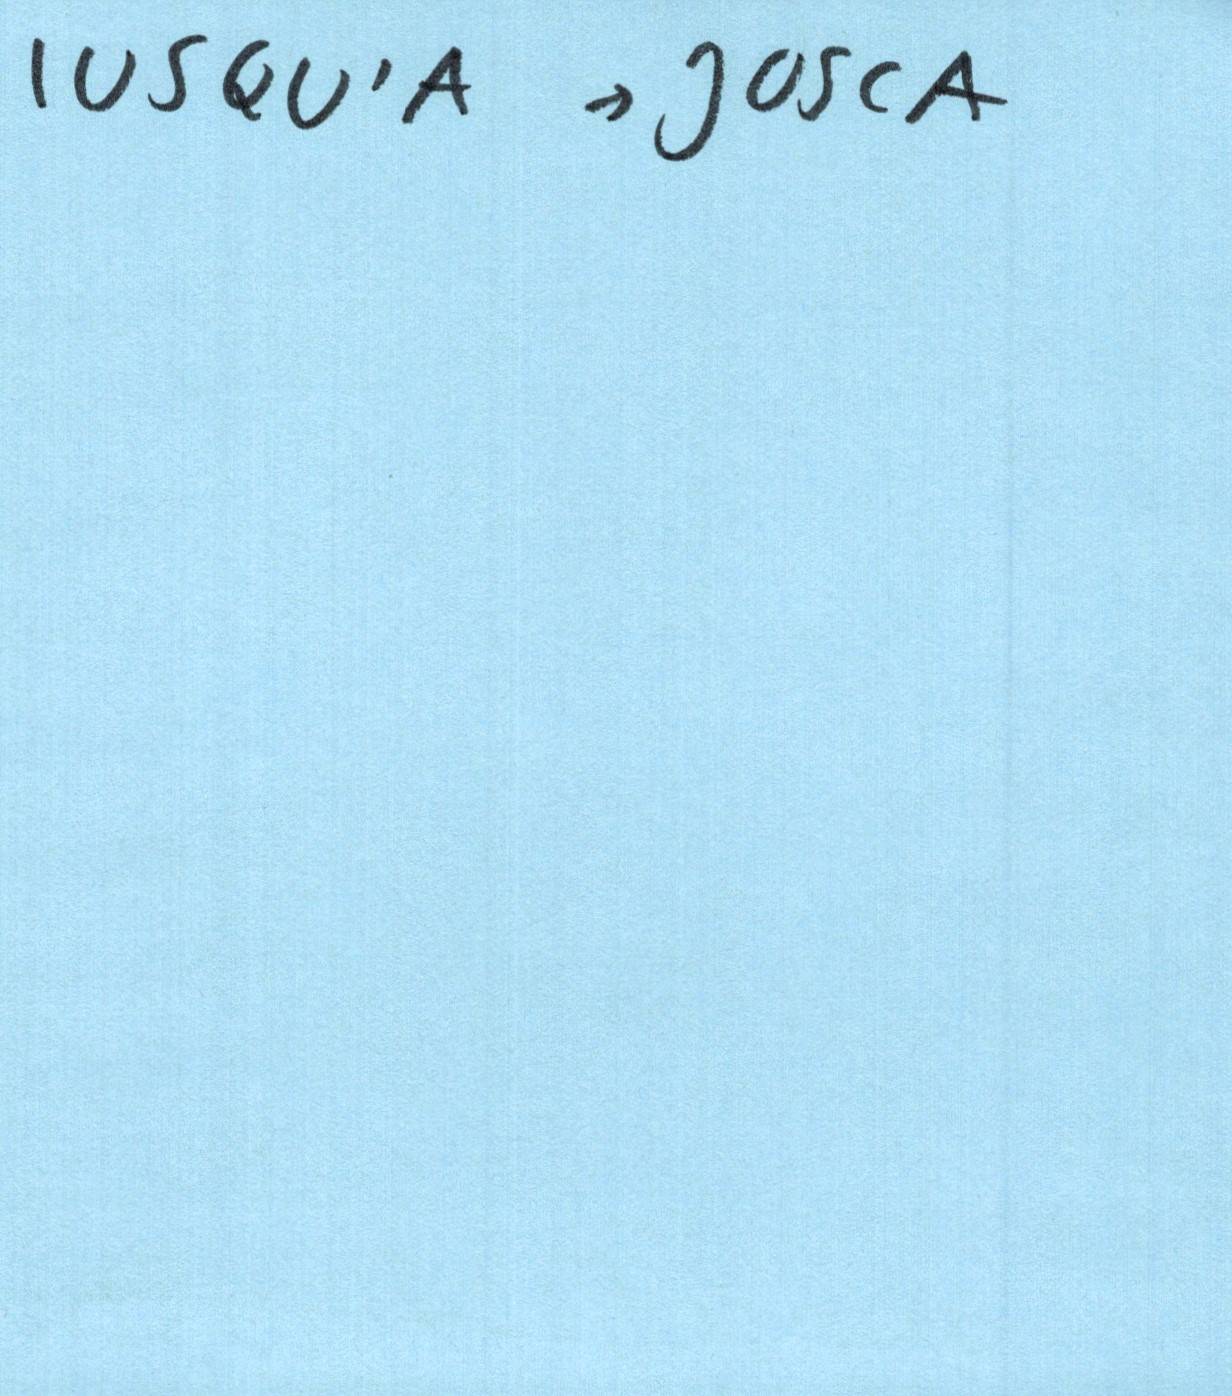 IUSQU'A → JOSCA